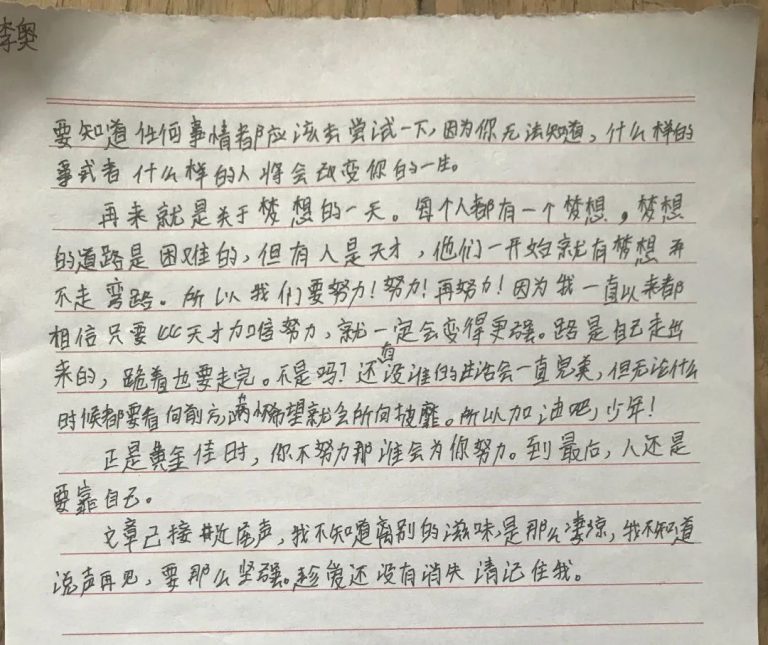 李奥
要知道任何事情都应该去尝试一下,因为你无法知道,什么样的
事或者什么样的人将会改变你的一生。
再来就是关于梦想的一天。每个人都有一个梦想。梦想
的道路是困难的,但有人是天才,他们一开始就有梦想并
不走弯路。所以我们要努力!努力!再努力!因为我一直以来都
相信只要比天才加倍努力,就一定会变得更强。路是自己走出
来的,跪着也要走完。不是吗?还有没谁的生活会一直完美,但无论什么
时候都要看向前方,满怀希望就会所向披靡。所以加油吧,少年!
正是黄金佳时,你不努力那谁会为你努力。到最后,人还是
要靠自己。
文章已接近尾声,我不知道离别的滋味是那么凄凉,我不知道
说声再见,要那么坚强。趁我还没有消失 请记住我。